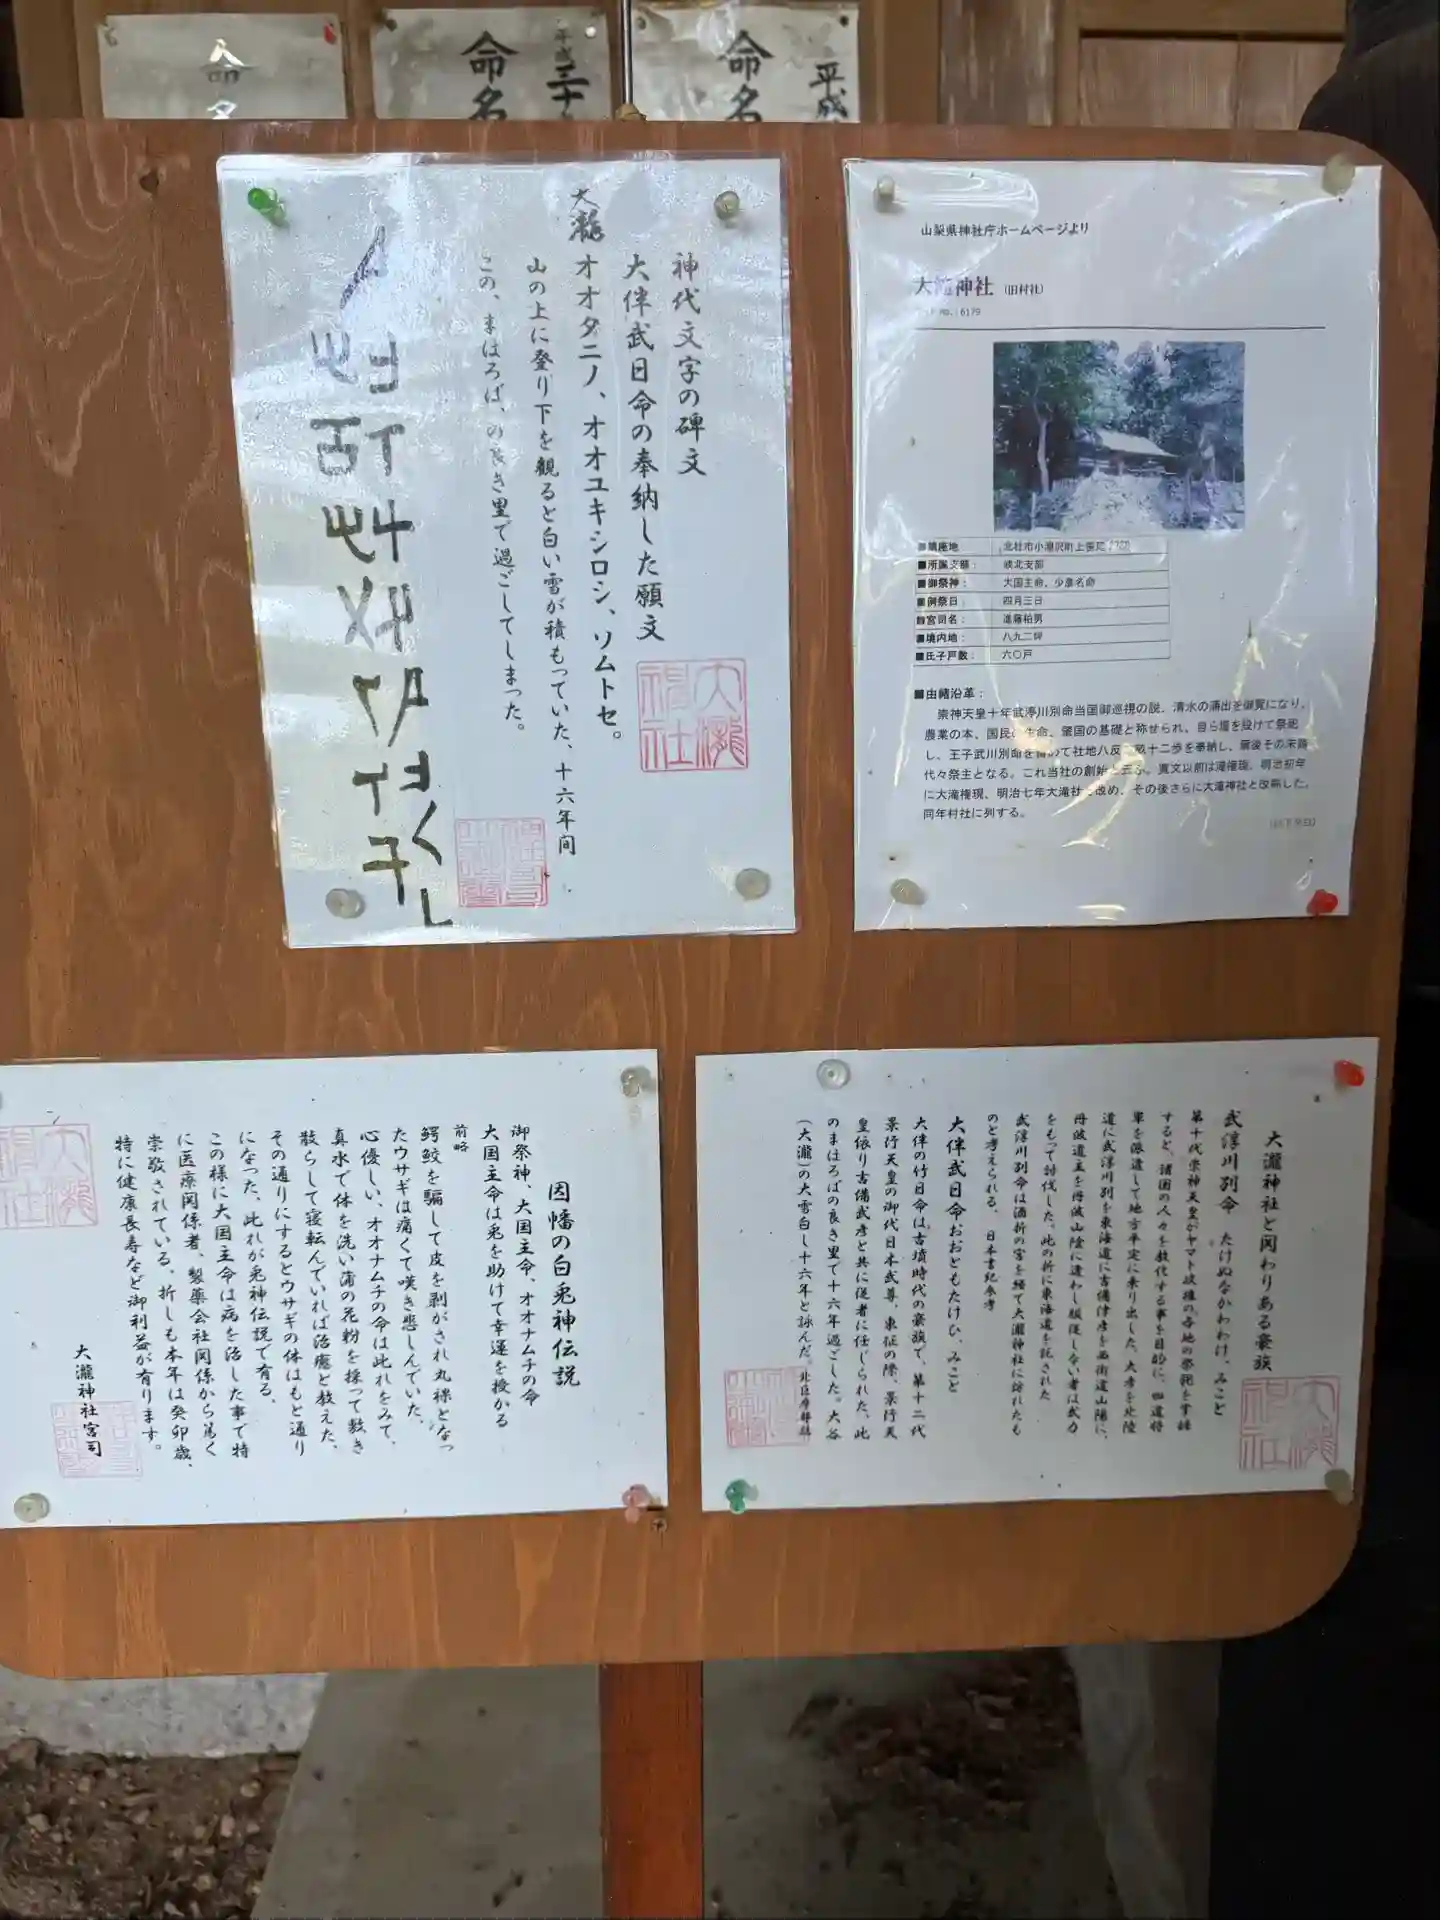 命名
命名
平成三十
命名
平成
山梨県神社庁ホームページより
大瀧神社 (旧村社)
no. 6179
■鎮座地 : 北杜市小淵沢町上笹尾
■所属支部 : 峡北支部
■御祭神 : 大国主命、少彦名命
■例祭日 : 四月三日
■宮司名 : 進藤柏男
■境内地 : 八九二坪
■氏子戸数 : 六〇戸
■由緒沿革 :
崇神天皇十年武渟川別命当国御巡視の説、清水の涌出を御覧になり、
農業の本、国民の生命、肇国の基礎と称せられ、自ら壇を設けて祭祀
し、王子武川別命を留めて社地八反 畝十二歩を奉納し、爾後その末裔
代々祭主となる。これ当社の創始と云ふ。寛文以前は滝権現、明治初年
に大滝権現、明治七年大滝社と改め、その後さらに大滝神社と改称した。
同年村社に列する。
神代文字の碑文
大伴武日命の奉納した願文
大瀧 オオタニノ、オオユキシロシ、ソムトセ。
山の上に登り下を観ると白い雪が積もっていた、十六年間
この、まほろば、の良き里で過ごしてしまった。
大瀧神社
大瀧神社と関わりある豪族
武渟川別命 たけぬなかわわけ、みこと
第十代崇神天皇がヤマト政権の各地の祭祀を掌握
すると、諸国の人々を教化する事を目的に、四道将
軍を派遣して地方平定に乗り出した。大彦を北陸
道に武渟川別を東海道に吉備津彦を西街道山陽に、
丹波道主を丹波山陰に遣わし服従しない者は武力
をもって討伐した。此の折に東海道を託された
武渟川別命は酒折の宮を経て大瀧神社に訪れたも
のと考えられる。 日本書紀参考
大伴武日命おおともたけひ、みこと
大伴の竹日命は古墳時代の豪族で、第十二代
景行天皇の御代日本武尊、東征の際、景行天
皇依り吉備武彦と共に従者に任じられた、此
のまほろばの良き里で十六年過ごした。大谷
(大瀧)の大雪白し十六年と詠んだ。北巨摩郡誌
大瀧神社
因幡の白兎神伝説
御祭神、大国主命、オオナムチの命
大国主命は兎を助けて幸運を授かる
前略
鰐鮫を騙して皮を剥がされ丸裸となっ
たウサギは痛くて嘆き悲しんでいた、
心優しい、オオナムチの命は此れをみて、
真水で体を洗い蒲の花粉を採って敷き
散らして寝転んでいれば治癒と教えた、
その通りにするとウサギの体はもと通り
になった、此れが兎神伝説で有る、
この様に大国主命は病を治した事で特
に医療関係者、製薬会社関係から篤く
崇敬されている。折しも本年は癸卯歳、
特に健康長寿など御利益が有ります。
大瀧神社宮司
大瀧神社